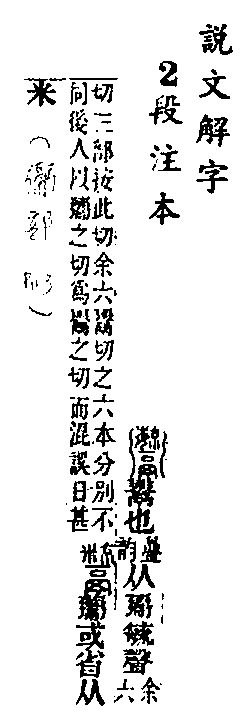 說文解字
2段注本
鬻也
从䰜毓聲余六
切三部按此切余六鬻切之六本分別不
同後人以鬻之切爲鬻之切而混誤日甚
鬻或省从
米（䰜部